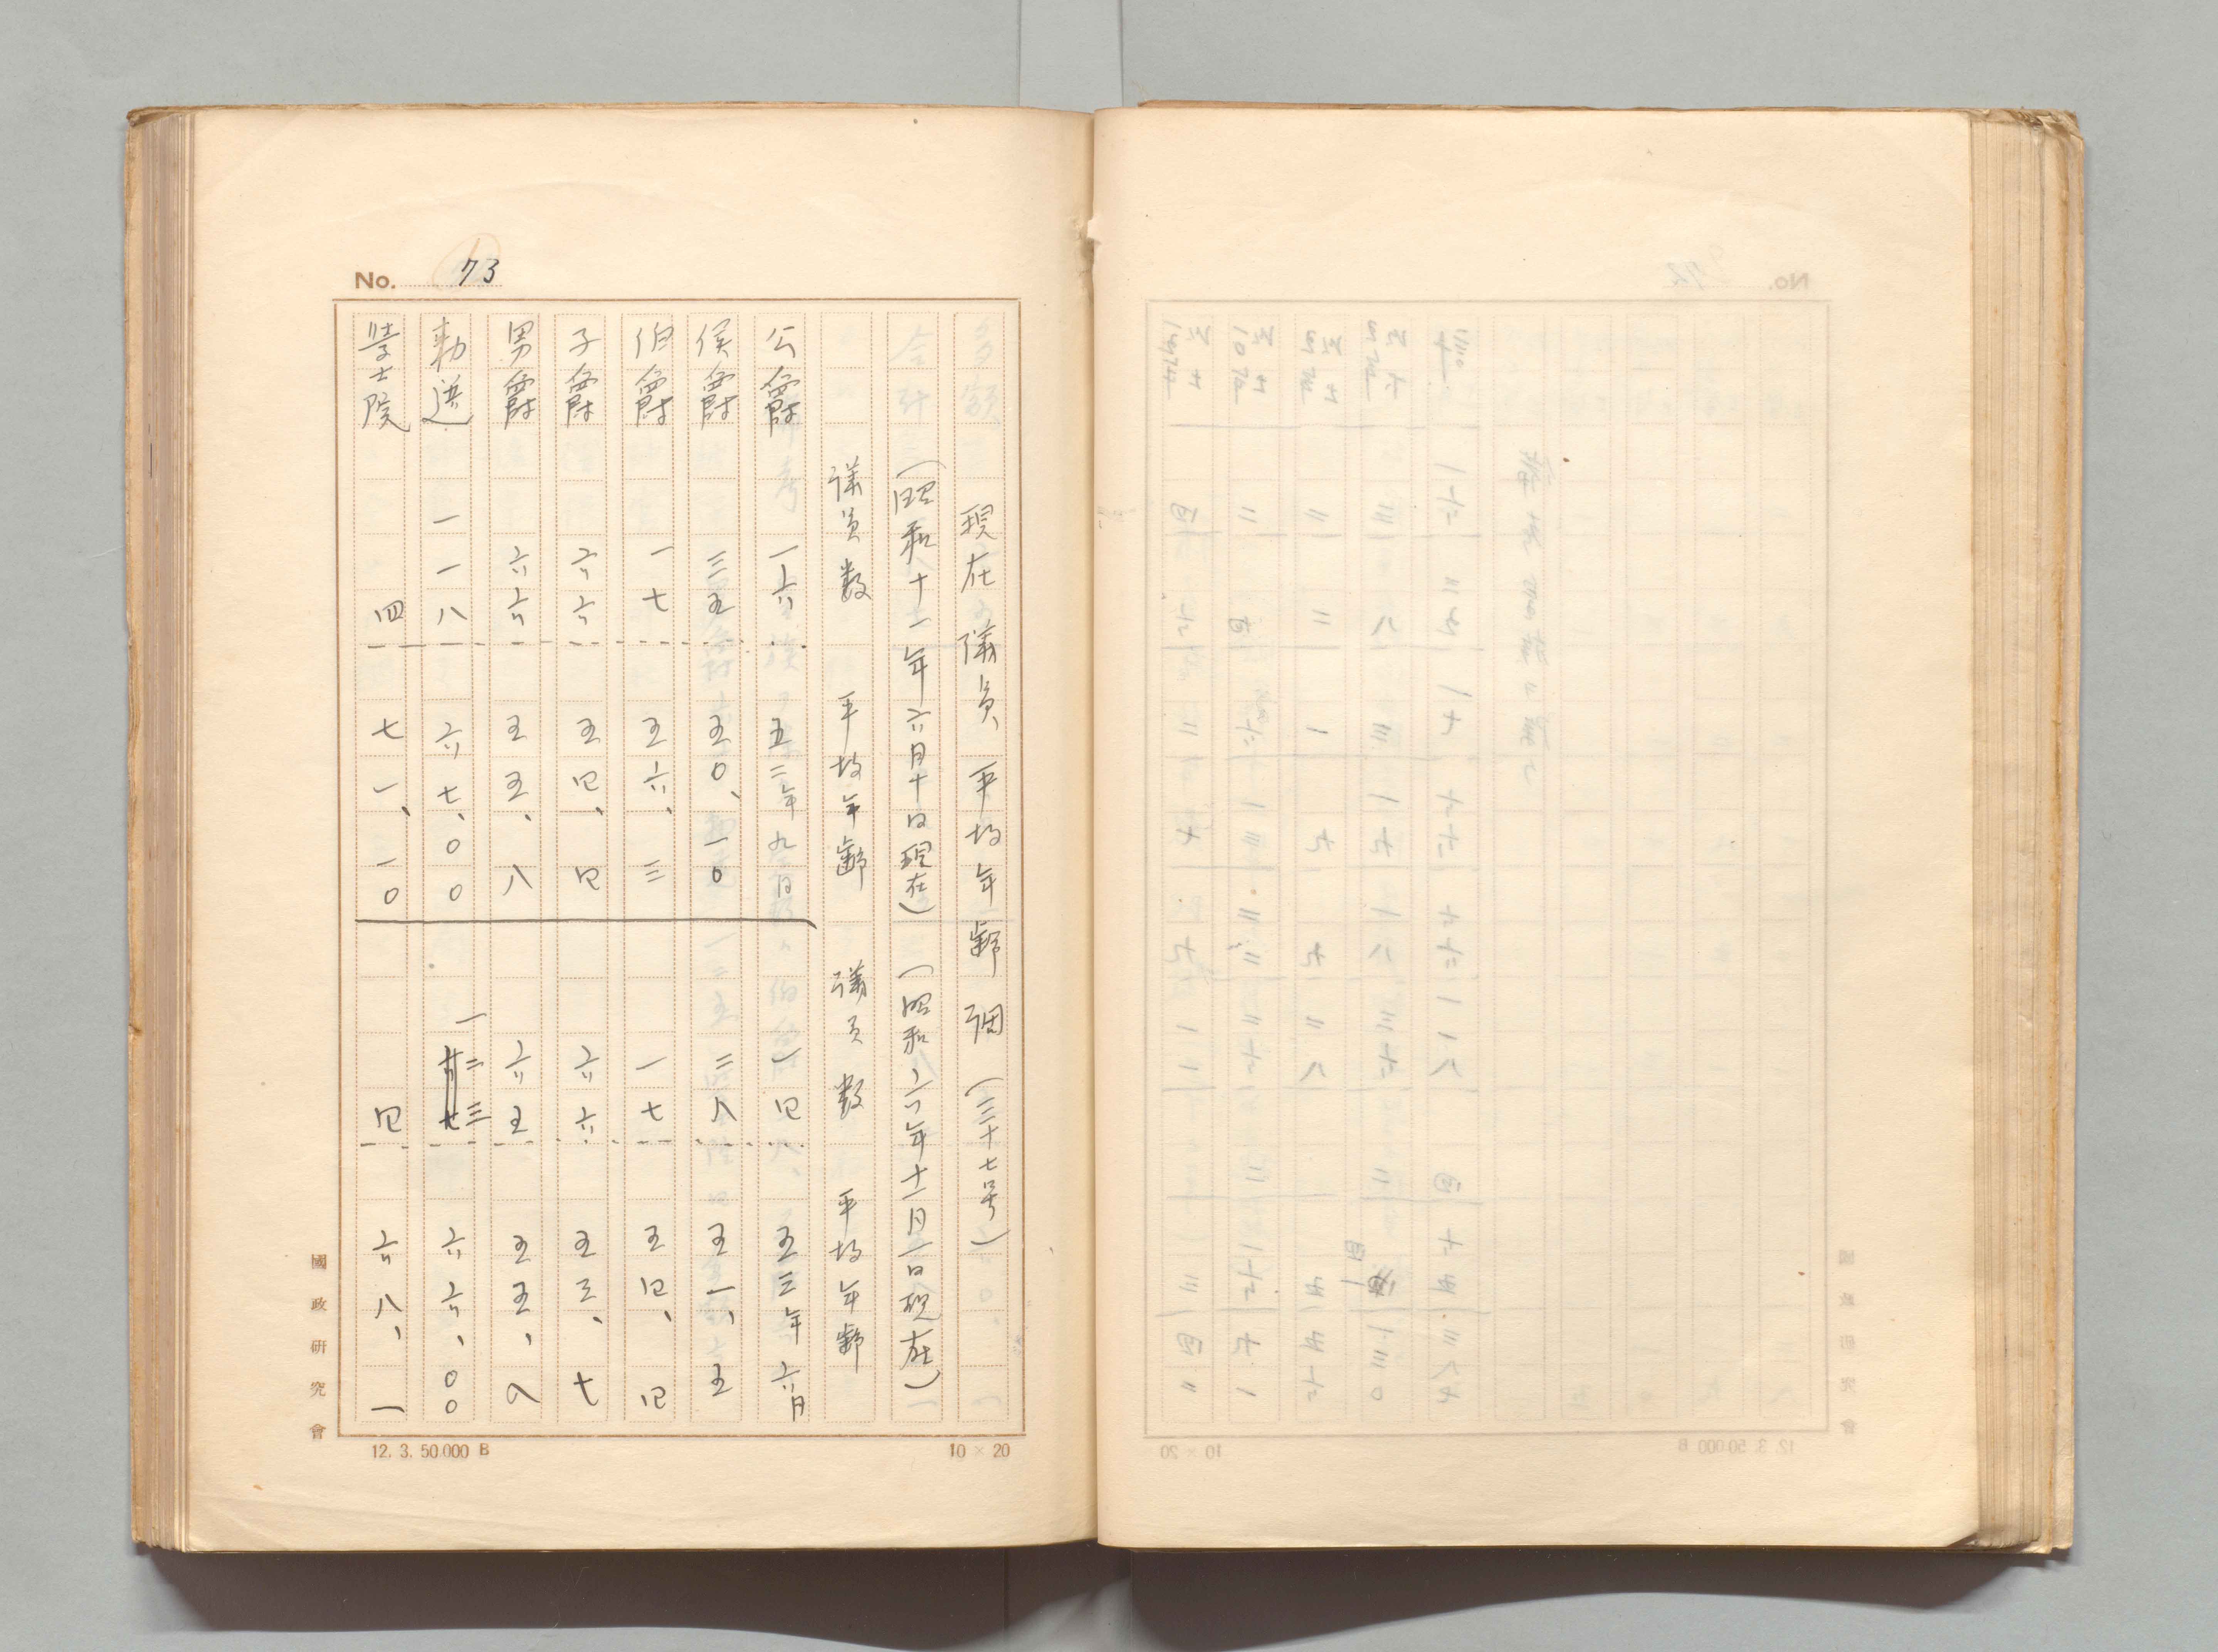 No. 73
現在議員平均年齢調(三十七号)
(昭和十一年六月十日現在)(昭和六年十一月一日現在)
議員数 平均年齢 議員数 平均年齢
公爵 一六 五二年九月 一四 五三年六月
侯爵 三五 五〇、一〇 二八 五一、五
伯爵 一七 五六、三 一七 五四、四
子爵 六六 五四、四 六六 五三、七
男爵 六六 五五、八 六五 五五、八
勅選 一一八 六七、〇〇 一二三 六六、〇〇
學士院 四 七一、一〇 四 六八、一
國政研究會
12. 3. 50.000 B
10 × 20